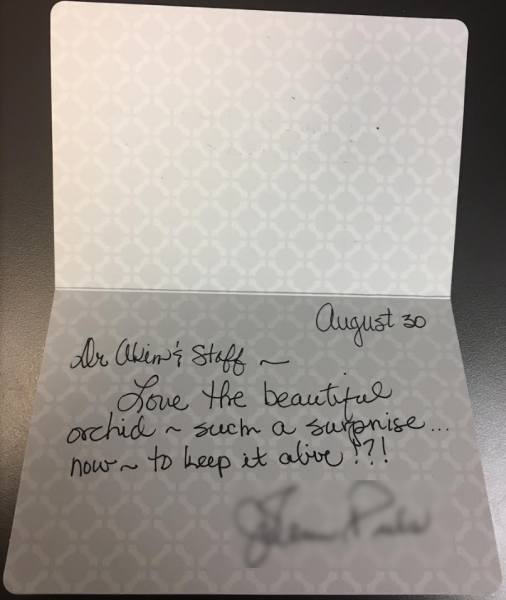 August 30
Dr Akin & Staff ~
Love the beautiful
orchid ~ such a surprise...
now ~ to keep it alive!?!